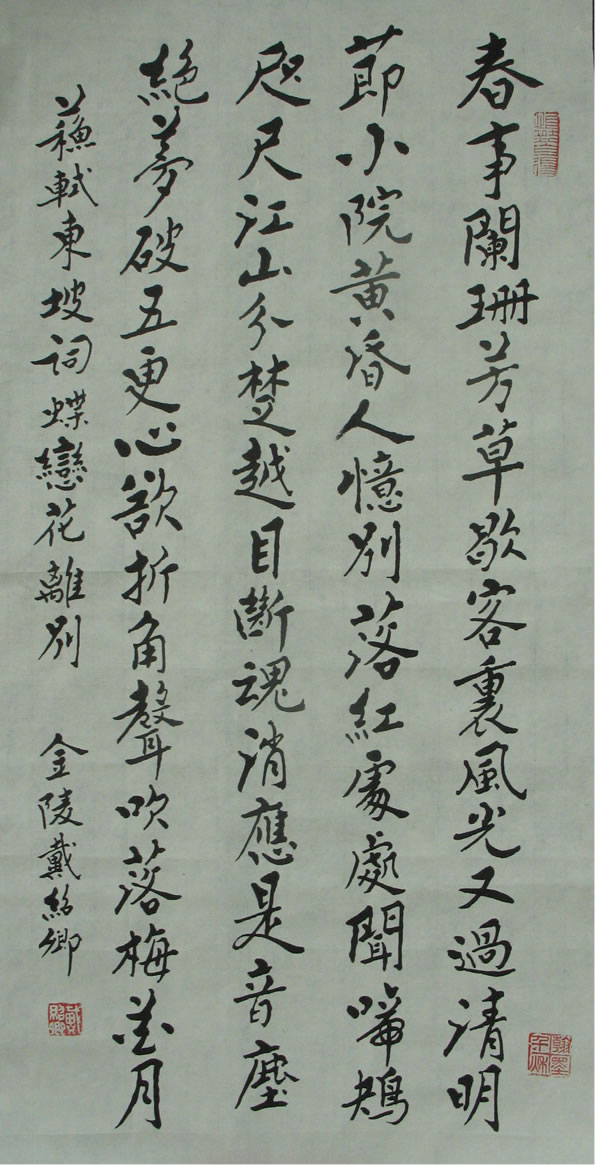 春事闌珊芳草歇客裏風光又過清明
節小院黃昏人憶別落紅處處聞啼鴂
咫尺江山分楚越目斷魂消應是音塵
絕夢破五更心欲折角聲吹落梅花月
蘇軾東坡詞蝶戀花離別 金陵戴紹卿